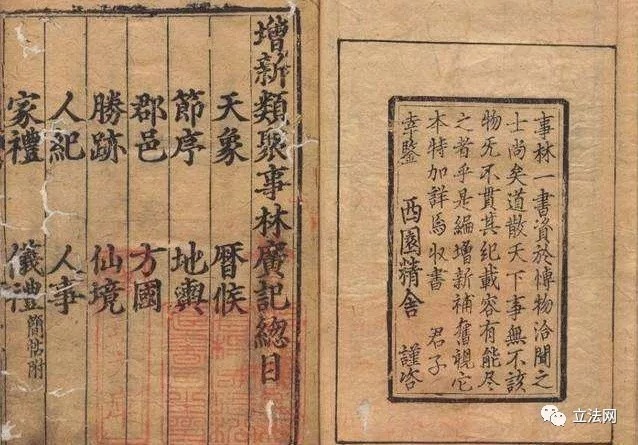 事林一書資於博物洽聞之
士尚矣道散天下事無不該
物无不貫其紀載容有能尽
之者乎是編增新補舊視它
本特加詳焉收書 君子
幸鑒 西園精舍 謹咨
增新類聚事林廣記總目
天象 曆候
節序 地輿
郡邑 方國
勝跡 仙境
人紀 人事
家禮 儀禮 簡帖附
立法网